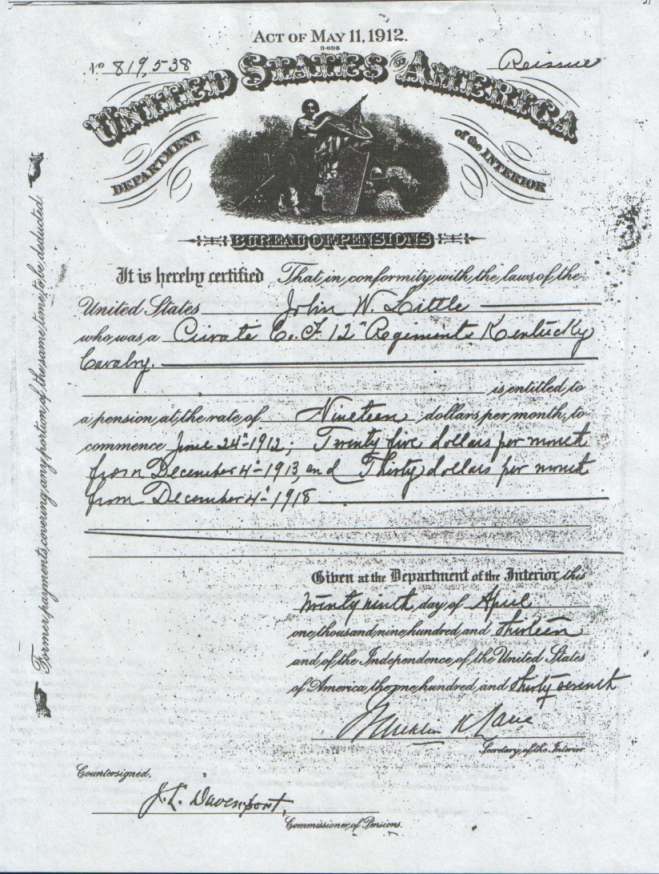 ACT OF MAY 11, 1912.
3-006
No 819,538
Reissue
UNITED STATES OF AMERICA
DEPARTMENT of the INTERIOR
BUREAU OF PENSIONS
It is hereby certified That in conformity with the laws of the
United States John W. Little
who was a Private Co. F. 12" Regiments Kentucky
Cavalry.
is entitled to
a pension at the rate of Nineteen dollars per month, to
commence June 24" 1912; Twenty five dollars per month
from December 4" 1913, and Thirty dollars per month
from December 4" 1918
Given at the Department of the Interior this
twenty ninth day of April
one thousand nine hundred and thirteen
and of the Independence of the United States
of America the one hundred and thirty seventh
Franklin K Lane
Secretary of the Interior
Countersigned,
J.L. Davenport,
Commissioner of Pensions.
Former payments covering any portion of the same time to be deducted